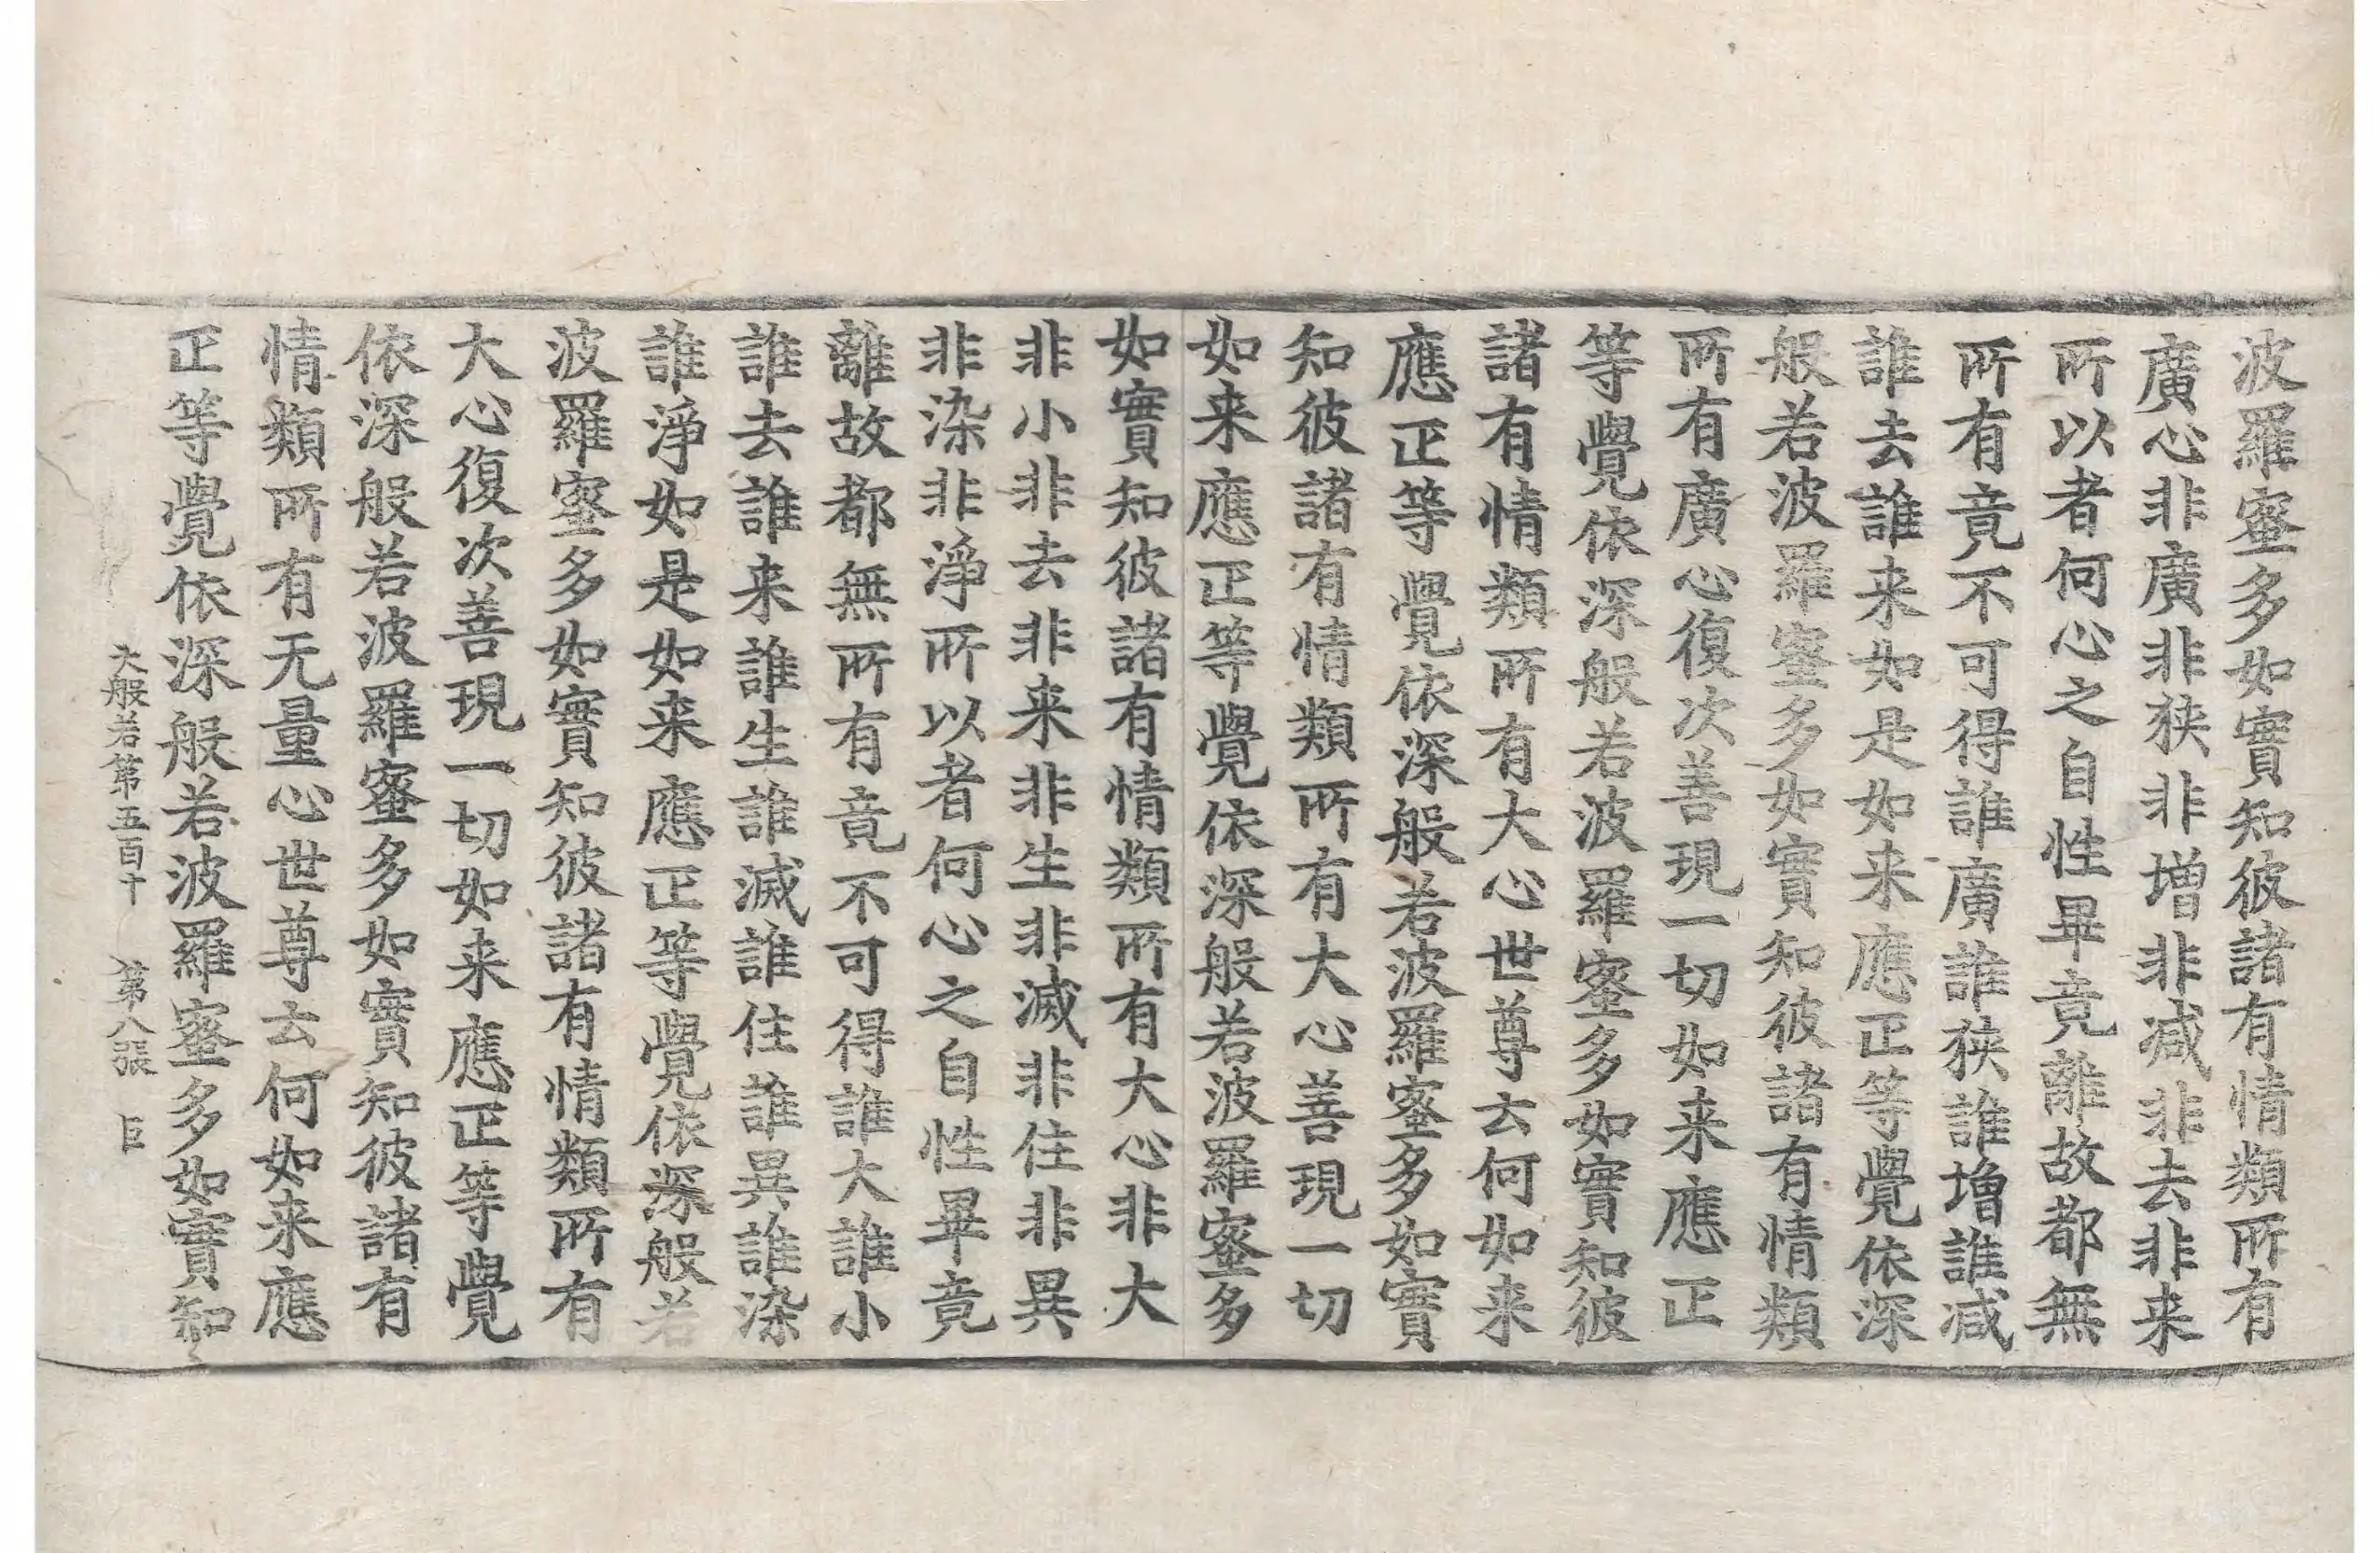 波羅蜜多如實知彼諸有情類所有
廣心非廣非狹非增非減非去非来
所以者何心之自性畢竟離故都無
所有竟不可得誰廣誰狹誰增誰減
誰去誰来如是如来應正等覺依深
般若波羅蜜多如實知彼諸有情類
所有廣心復次善現一切如来應正
等覺依深般若波羅蜜多如實知彼
諸有情類所有大心世尊云何如来
應正等覺依深般若波羅蜜多如實
知彼諸有情類所有大心善現一切
如来應正等覺依深般若波羅蜜多
如實知彼諸有情類所有大心非大
非小非去非来非生非滅非住非異
非染非淨所以者何心之自性畢竟
離故都無所有竟不可得誰大誰小
誰去誰来誰生誰滅誰住誰異誰染
誰淨如是如来應正等覺依深般若
波羅蜜多如實知彼諸有情類所有
大心復次善現一切如来應正等覺
依深般若波羅蜜多如實知彼諸有
情類所有无量心世尊云何如来應
正等覺依深般若波羅蜜多如實知
大般若第五百十 第八張 臣